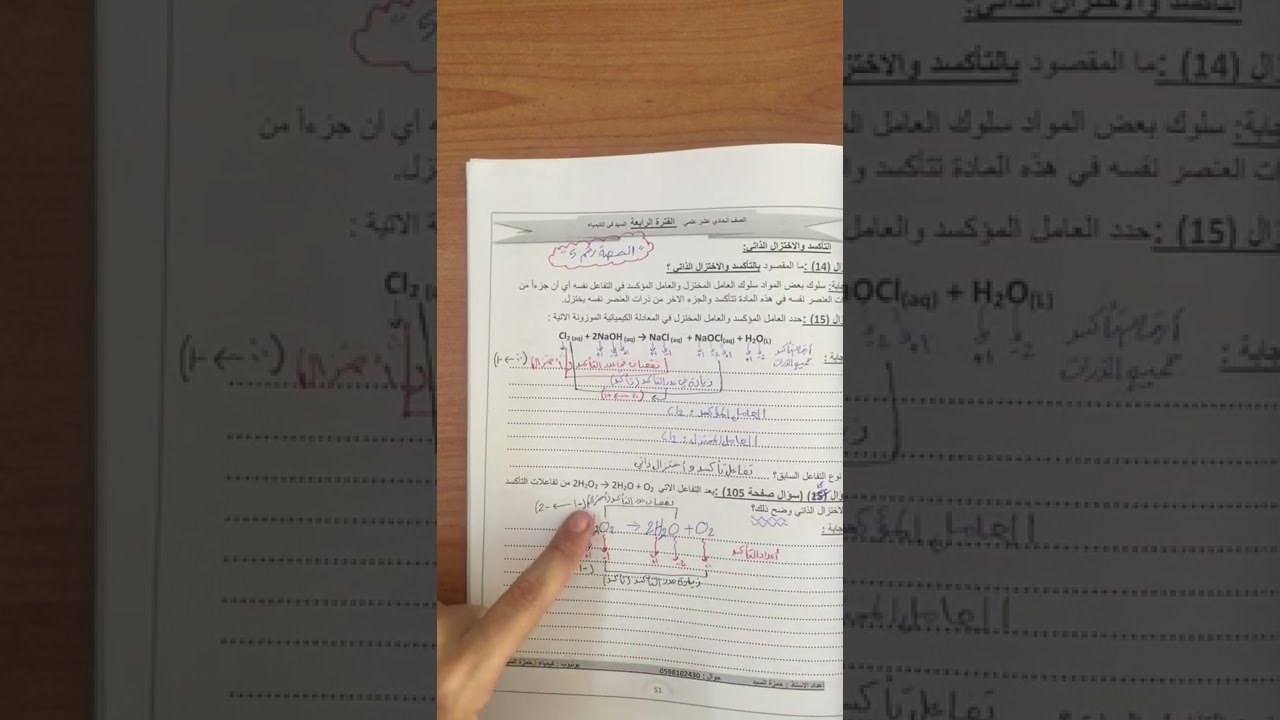 الصف الحادي عشر علمي الفترة الرابعة السيد في الكيمياء
التأكسد والاختزال الذاتي:
"الحصة رقم 5"
زال (14) : ما المقصود بالتأكسد والاختزال الذاتي ؟
جابة: سلوك بعض المواد سلوك العامل المختزل والعامل المؤكسد في التفاعل نفسه أي ان جزءاً من
ات العنصر نفسه في هذه المادة تتأكسد والجزء الاخر من ذرات العنصر نفسه يختزل.
زال (15) : حدد العامل المؤكسد والعامل المختزل في المعادلة الكيميائية الموزونة الاتية :
Cl₂ (aq) + 2NaOH (aq) → NaCl (aq) + NaOCl(aq) + H₂O(L)
جابة :
نقصان في عدد التأكسد (اختزال) (0 → -1)
زيادة في عدد التأكسد (تأكسد)
العامل المؤكسد : Cl₂
العامل المختزل : Cl₂
نوع التفاعل السابق؟ تفاعل تأكسد واختزال ذاتي
(سؤال صفحة 105) : يعد التفاعل الاتي 2H₂O₂ → 2H₂O + O₂ من تفاعلات التأكسد
لاختزال الذاتي وضح ذلك؟
نقصان عدد التأكسد (اختزال) (-1 → -2)
جابة :
O₂ → 2H₂O + O₂
أعداد التأكسد
زيادة عدد التأكسد (تأكسد)
اعداد الاستاذ : حمزة السيد جوال : 0598102430 يوتيوب : كيمياء / حمزة السيد
51